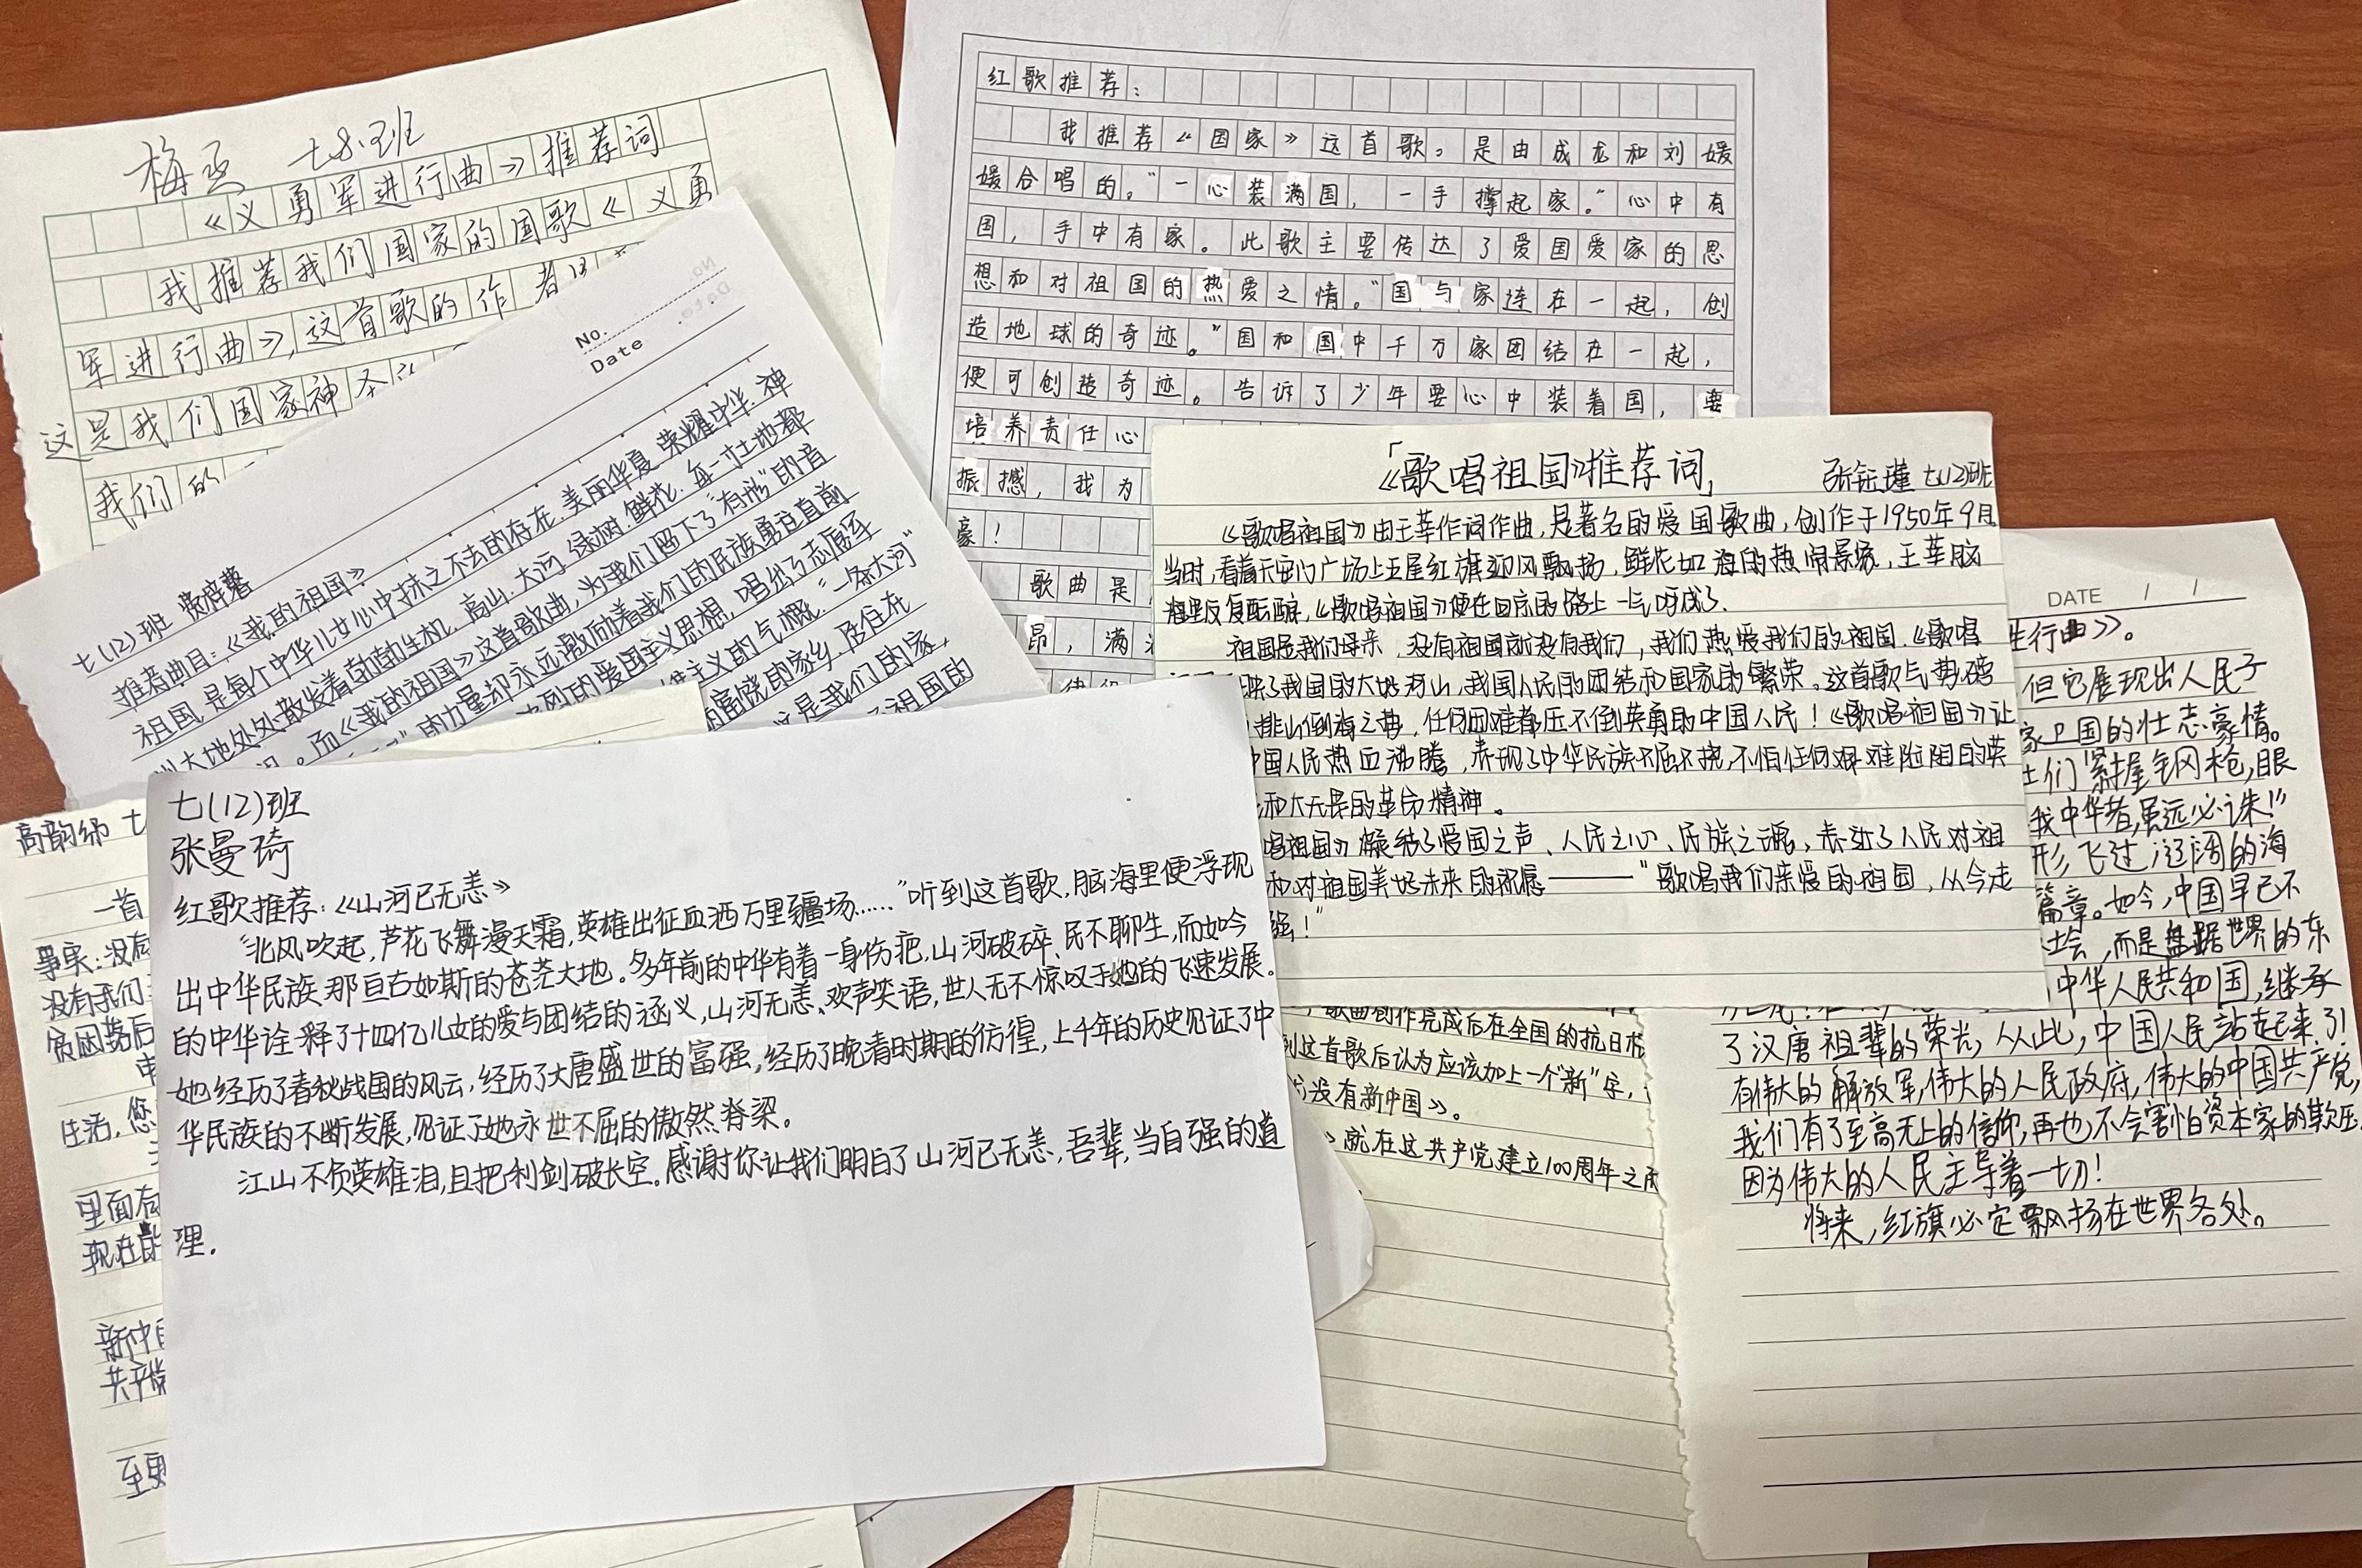 梅丞 七8.班
《义勇军进行曲》推荐词
我推荐我们国家的国歌《义勇
军进行曲》,这首歌的作者
这是我们国家神圣
我们的
红歌推荐:
我推荐《国家》这首歌。是由成龙和刘媛
媛合唱的。“一心装满国,一手撑起家。”心中有
国,手中有家。此歌主要传达了爱国爱家的思
想和对祖国的热爱之情。“国与家连在一起,创
造地球的奇迹。”国和国中千万家团结在一起,
便可创造奇迹。告诉了少年要心中装着国,要
培养责任心
振撼,我为
豪!
歌曲是
昂,满
No.
Date
七(12)班
推荐曲目:《我的祖国》
祖国,是每个中华儿女心中抹之不去的存在.美丽华夏.荣耀中华.神
大地处处散发着勃勃生机,高山.大河.绿树.鲜花.每一寸土地都
。而《我的祖国》这首歌曲,为我们留下了“有形”的音
”的力量却永远激励着我们的民族勇往直前
的爱国主义思想,唱出了志愿军
主义的气概.“一条大河”
富饶的家乡,居住在
是我们的家,
祖国的
《歌唱祖国》推荐词
张钰瑾 七(12)班
《歌唱祖国》由王莘作词作曲,是著名的爱国歌曲,创作于1950年9月
当时,看着天安门广场上五星红旗迎风飘扬,鲜花如海的热闹景象,王莘脑
海里反复酝酿,《歌唱祖国》便在回京的路上一气呵成了.
祖国是我们母亲,没有祖国就没有我们,我们热爱我们的祖国.《歌唱
了我国的大地河山,我国人民的团结和国家的繁荣.这首歌气势磅
排山倒海之势,任何困难都压不倒英勇的中国人民!《歌唱祖国》让
中国人民热血沸腾,表现了中华民族不屈不挠,不怕任何艰难险阻的英
和大无畏的革命精神。
唱祖国》凝结了爱国之声、人民之心、民族之魂,表达了人民对祖
和对祖国美好未来的祝愿——“歌唱我们亲爱的祖国,从今走
强!”
七(12)班
张曼琦
红歌推荐:《山河已无恙》
“北风吹起,芦花飞舞漫天霜,英雄出征血洒万里疆场……”听到这首歌,脑海里便浮现
出中华民族那亘古如斯的苍茫大地。多年前的中华有着一身伤疤,山河破碎、民不聊生,而如今
的中华诠释了十四亿儿女的爱与团结的涵义,山河无恙、欢声笑语,世人无不惊叹于她的飞速发展。
她经历了春秋战国的风云,经历了大唐盛世的富强,经历了晚清时期的彷徨,上千年的历史见证了中
华民族的不断发展,见证了她永世不屈的傲然脊梁。
江山不负英雄泪,且把利剑破长空。感谢你让我们明白了山河已无恙,吾辈,当自强的道
理.
高韵
一首
事实:没有
没有我们
贫困落后
生活,您
里面有
现在的
新中国
共产党
歌曲创作完成后在全国的抗日根
到这首歌后认为应该加上一个“新”字,
没有新中国》。
》就在这共产党建立100周年之
DATE / /
行曲》。
但它展现出人民子
家卫国的壮志豪情。
士们紧握钢枪,眼
我中华者,虽远必诛!”
形,飞过辽阔的海
篇章。如今,中国早已不
,而是盘踞世界的东
中华人民共和国,继承
了汉唐祖辈的荣光,从此,中国人民站起来了!
有伟大的解放军,伟大的人民政府,伟大的中国共产党,
我们有了至高无上的信仰,再也不会害怕资本家的欺压,
因为伟大的人民主导着一切!
将来,红旗必定飘扬在世界各处。